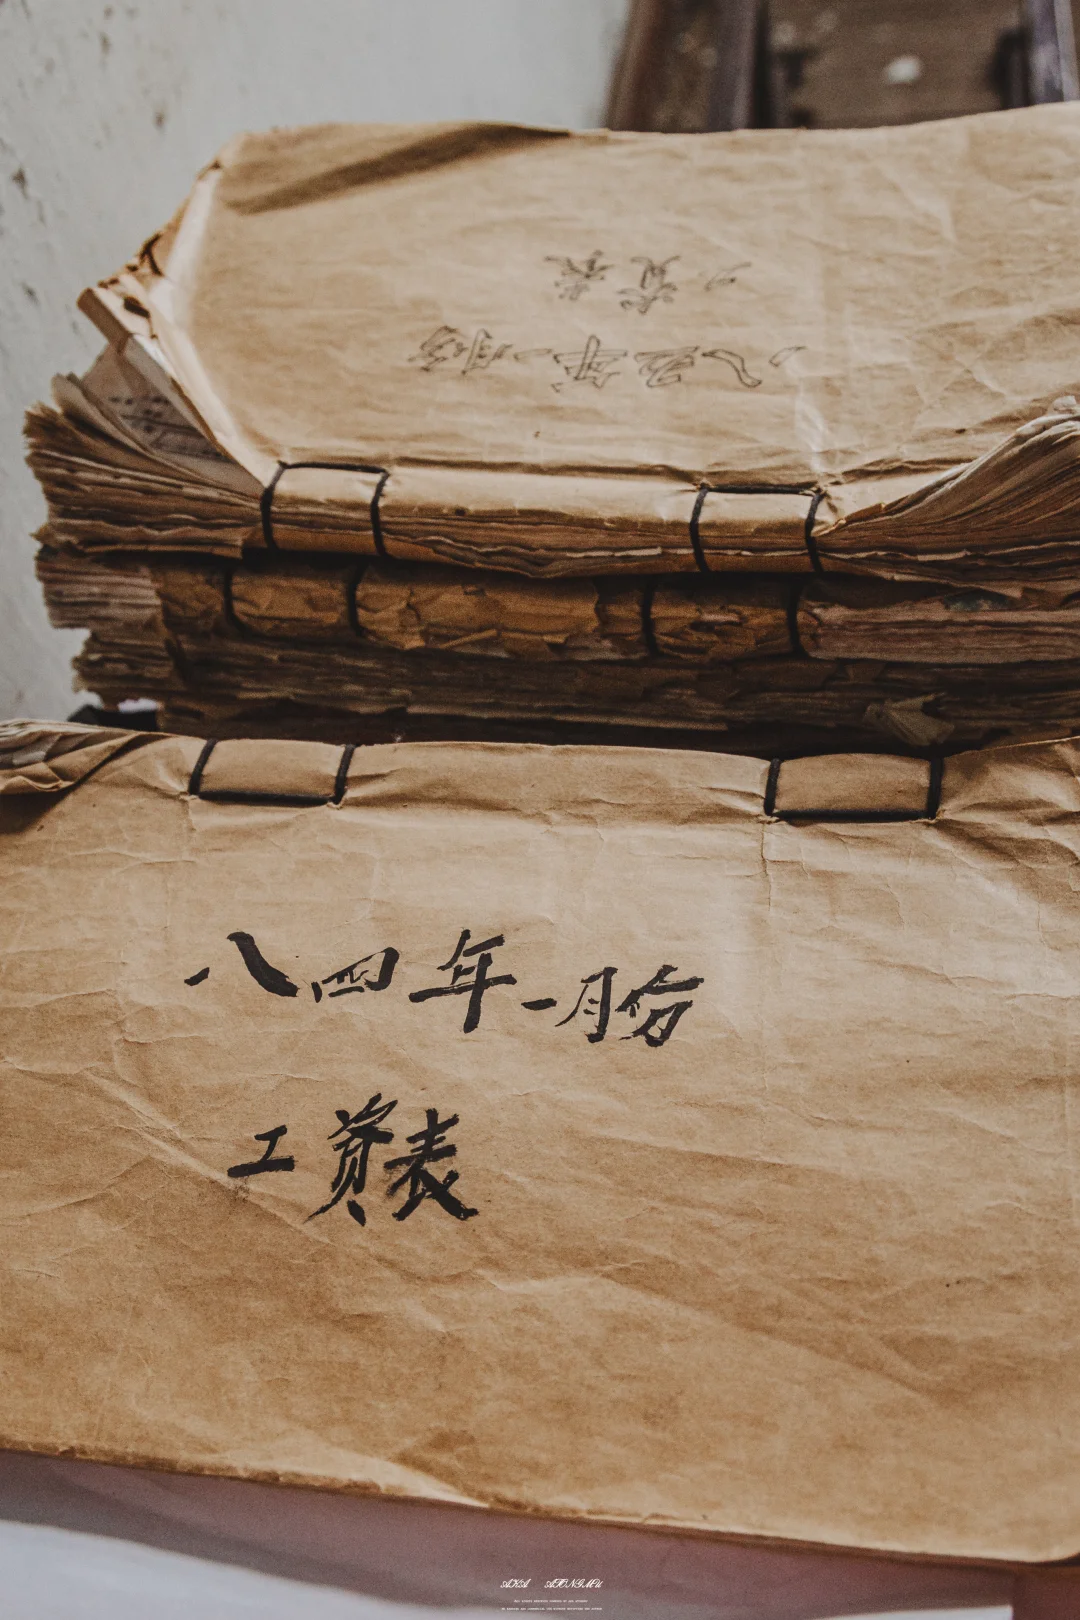 八五年一月份
工资表
八四年一月份
工资表
AKA ATONGMU